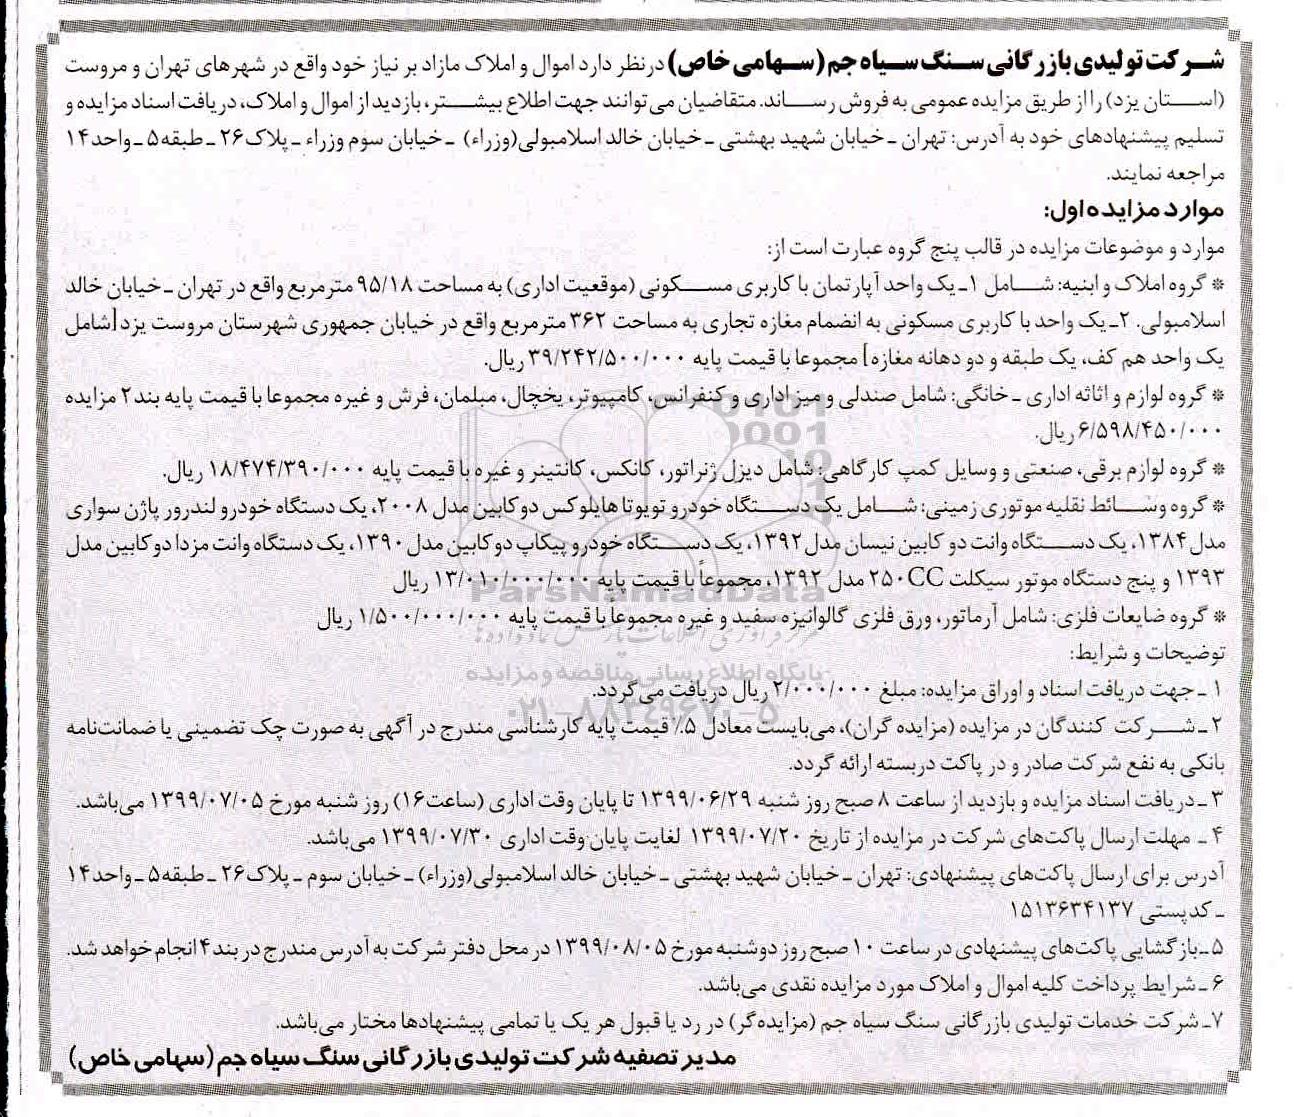 شرکت تولیدی بازرگانی سنگ سیاه جم (سهامی خاص) درنظر دارد اموال و املاک مازاد بر نیاز خود واقع در شهرهای تهران و مروست
(استان یزد) را از طریق مزایده عمومی به فروش رساند. متقاضیان می‌توانند جهت اطلاع بیشتر، بازدید از اموال و املاک، دریافت اسناد مزایده و
تسلیم پیشنهادهای خود به آدرس: تهران ـ خیابان شهید بهشتی ـ خیابان خالد اسلامبولی(وزراء) ـ خیابان سوم وزراء ـ پلاک۲۶ ـ طبقه۵ ـ واحد۱۴
مراجعه نمایند.
موارد مزایده اول:
موارد و موضوعات مزایده در قالب پنج گروه عبارت است از:
* گروه املاک و ابنیه: شامل ۱ـ یک واحد آپارتمان با کاربری مسکونی (موقعیت اداری) به مساحت ۹۵/۱۸ مترمربع واقع در تهران ـ خیابان خالد
اسلامبولی. ۲ـ یک واحد با کاربری مسکونی به انضمام مغازه تجاری به مساحت ۳۶۲ مترمربع واقع در خیابان جمهوری شهرستان مروست یزد [شامل
یک واحد هم کف، یک طبقه و دو دهانه مغازه] مجموعا با قیمت پایه ۳۹/۲۴۲/۵۰۰/۰۰۰ ریال.
* گروه لوازم و اثاثه اداری ـ خانگی: شامل صندلی و میز اداری و کنفرانس، کامپیوتر، یخچال، مبلمان، فرش و غیره مجموعا با قیمت پایه بند۲ مزایده
۶/۵۹۸/۴۵۰/۰۰۰ ریال.
* گروه لوازم برقی، صنعتی و وسایل کمپ کارگاهی: شامل دیزل ژنراتور، کانکس، کانتینر و غیره با قیمت پایه ۱۸/۴۷۴/۳۹۰/۰۰۰ ریال.
* گروه وسائط نقلیه موتوری زمینی: شامل یک دستگاه خودرو تویوتا هایلوکس دوکابین مدل ۲۰۰۸، یک دستگاه خودرو لندرور پاژن سواری
مدل۱۳۸۴، یک دستگاه وانت دو کابین نیسان مدل۱۳۹۲، یک دستگاه خودرو پیکاپ دوکابین مدل۱۳۹۰، یک دستگاه وانت مزدا دوکابین مدل
۱۳۹۳ و پنج دستگاه موتور سیکلت ۲۵۰CC مدل ۱۳۹۲، مجموعاً با قیمت پایه ۱۳/۰۱۰/۰۰۰/۰۰۰ ریال
ParsNamadData
* گروه ضایعات فلزی: شامل آرماتور، ورق فلزی گالوانیزه سفید و غیره مجموعاً با قیمت پایه ۱/۵۰۰/۰۰۰/۰۰۰ ریال
توضیحات و شرایط:
پایگاه اطلاع رسانی مناقصه و مزایده
۱ ـ جهت دریافت اسناد و اوراق مزایده: مبلغ ۲/۰۰۰/۰۰۰ ریال دریافت می‌گردد.
۰۲۱-۸۸۳۴۹۶۷۰-۵
۲ ـ شرکت کنندگان در مزایده (مزایده گران)، می‌بایست معادل ۵٪ قیمت پایه کارشناسی مندرج در آگهی به صورت چک تضمینی یا ضمانت‌نامه
بانکی به نفع شرکت صادر و در پاکت دربسته ارائه گردد.
۳ ـ دریافت اسناد مزایده و بازدید از ساعت ۸ صبح روز شنبه ۱۳۹۹/۰۶/۲۹ تا پایان وقت اداری (ساعت۱۶) روز شنبه مورخ ۱۳۹۹/۰۷/۰۵ می‌باشد.
۴ ـ مهلت ارسال پاکت‌های شرکت در مزایده از تاریخ ۱۳۹۹/۰۷/۲۰ لغایت پایان وقت اداری ۱۳۹۹/۰۷/۳۰ می‌باشد.
آدرس برای ارسال پاکت‌های پیشنهادی: تهران ـ خیابان شهید بهشتی ـ خیابان خالد اسلامبولی(وزراء) ـ خیابان سوم ـ پلاک۲۶ ـ طبقه۵ ـ واحد۱۴
ـ کدپستی ۱۵۱۳۶۳۴۱۳۷
۵ ـ بازگشایی پاکت‌های پیشنهادی در ساعت ۱۰ صبح روز دوشنبه مورخ ۱۳۹۹/۰۸/۰۵ در محل دفتر شرکت به آدرس مندرج در بند ۴ انجام خواهد شد.
۶ ـ شرایط پرداخت کلیه اموال و املاک مورد مزایده نقدی می‌باشد.
۷ـ شرکت خدمات تولیدی بازرگانی سنگ سیاه جم (مزایده‌گر) در رد یا قبول هر یک یا تمامی پیشنهادها مختار می‌باشد.
مدیر تصفیه شرکت تولیدی بازرگانی سنگ سیاه جم (سهامی خاص)